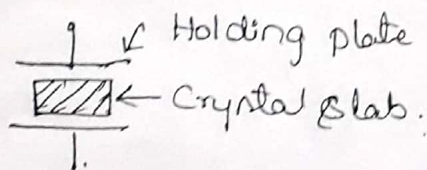 Holding plate
Crystal slab.